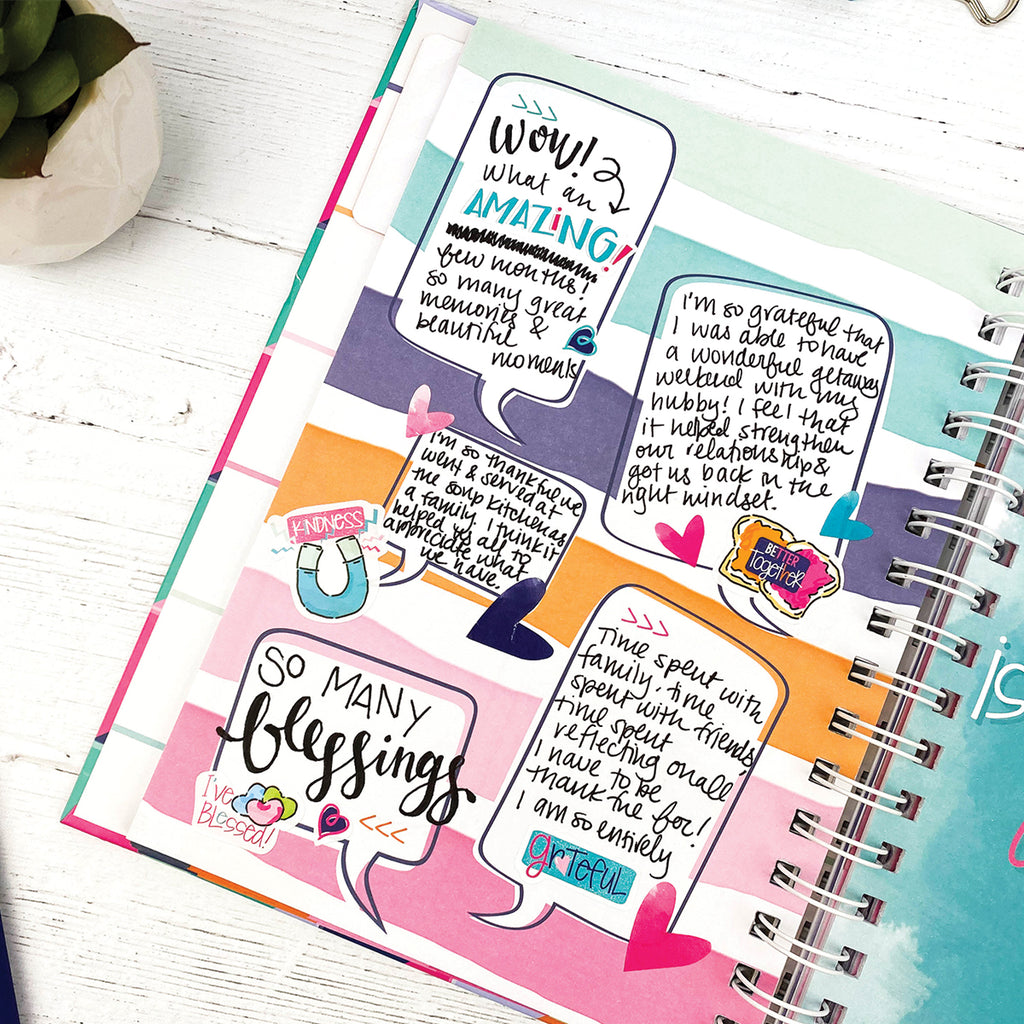 >>>
WOW!
What an
AMAZING!
few months!
so many great
memories &
beautiful
moments
I'm so grateful that
I was able to have
a wonderful getaway
weekend with my
hubby! I feel that
it helped strengthen
our relationship &
got us back in the
right mindset.
BETTER
TogetheR
I'm so thankful we
went & served at
the soup kitchen as
a family. I think it
helped us all to
appreciate what
we have.
KINDNESS
SO MANY
blessings
I've
BLessed!
<<<
>>>
Time spent with
family, time
spent with friends,
time spent
reflecting on all
I have to be
thankful for!
I am so entirely
grTefuL
is